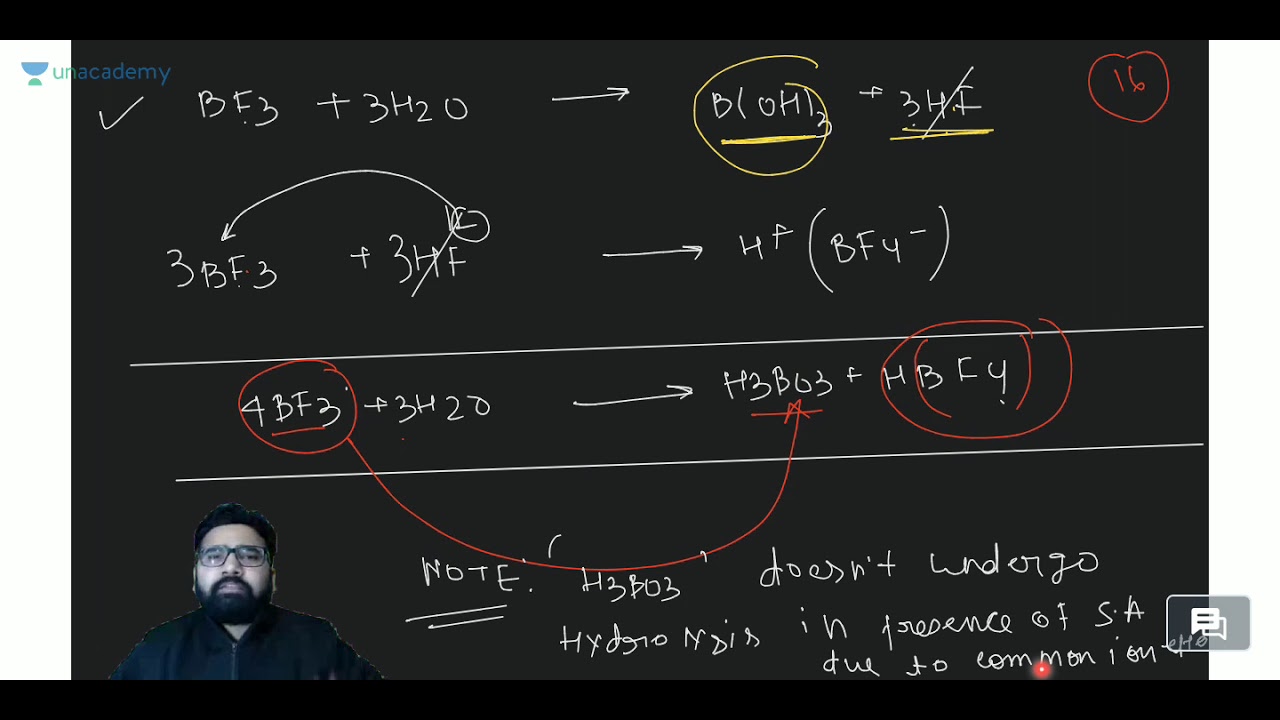 unacademy
BF3 + 3H2O → B(OH)3 + 3HF
16
F-
3BF3 + 3HF → H+ (BF4-)
4BF3 + 3H2O → H3BO3 + HBF4
NOTE: 'H3BO3' doesn't undergo
Hydrolysis in presence of S.A
due to common ion